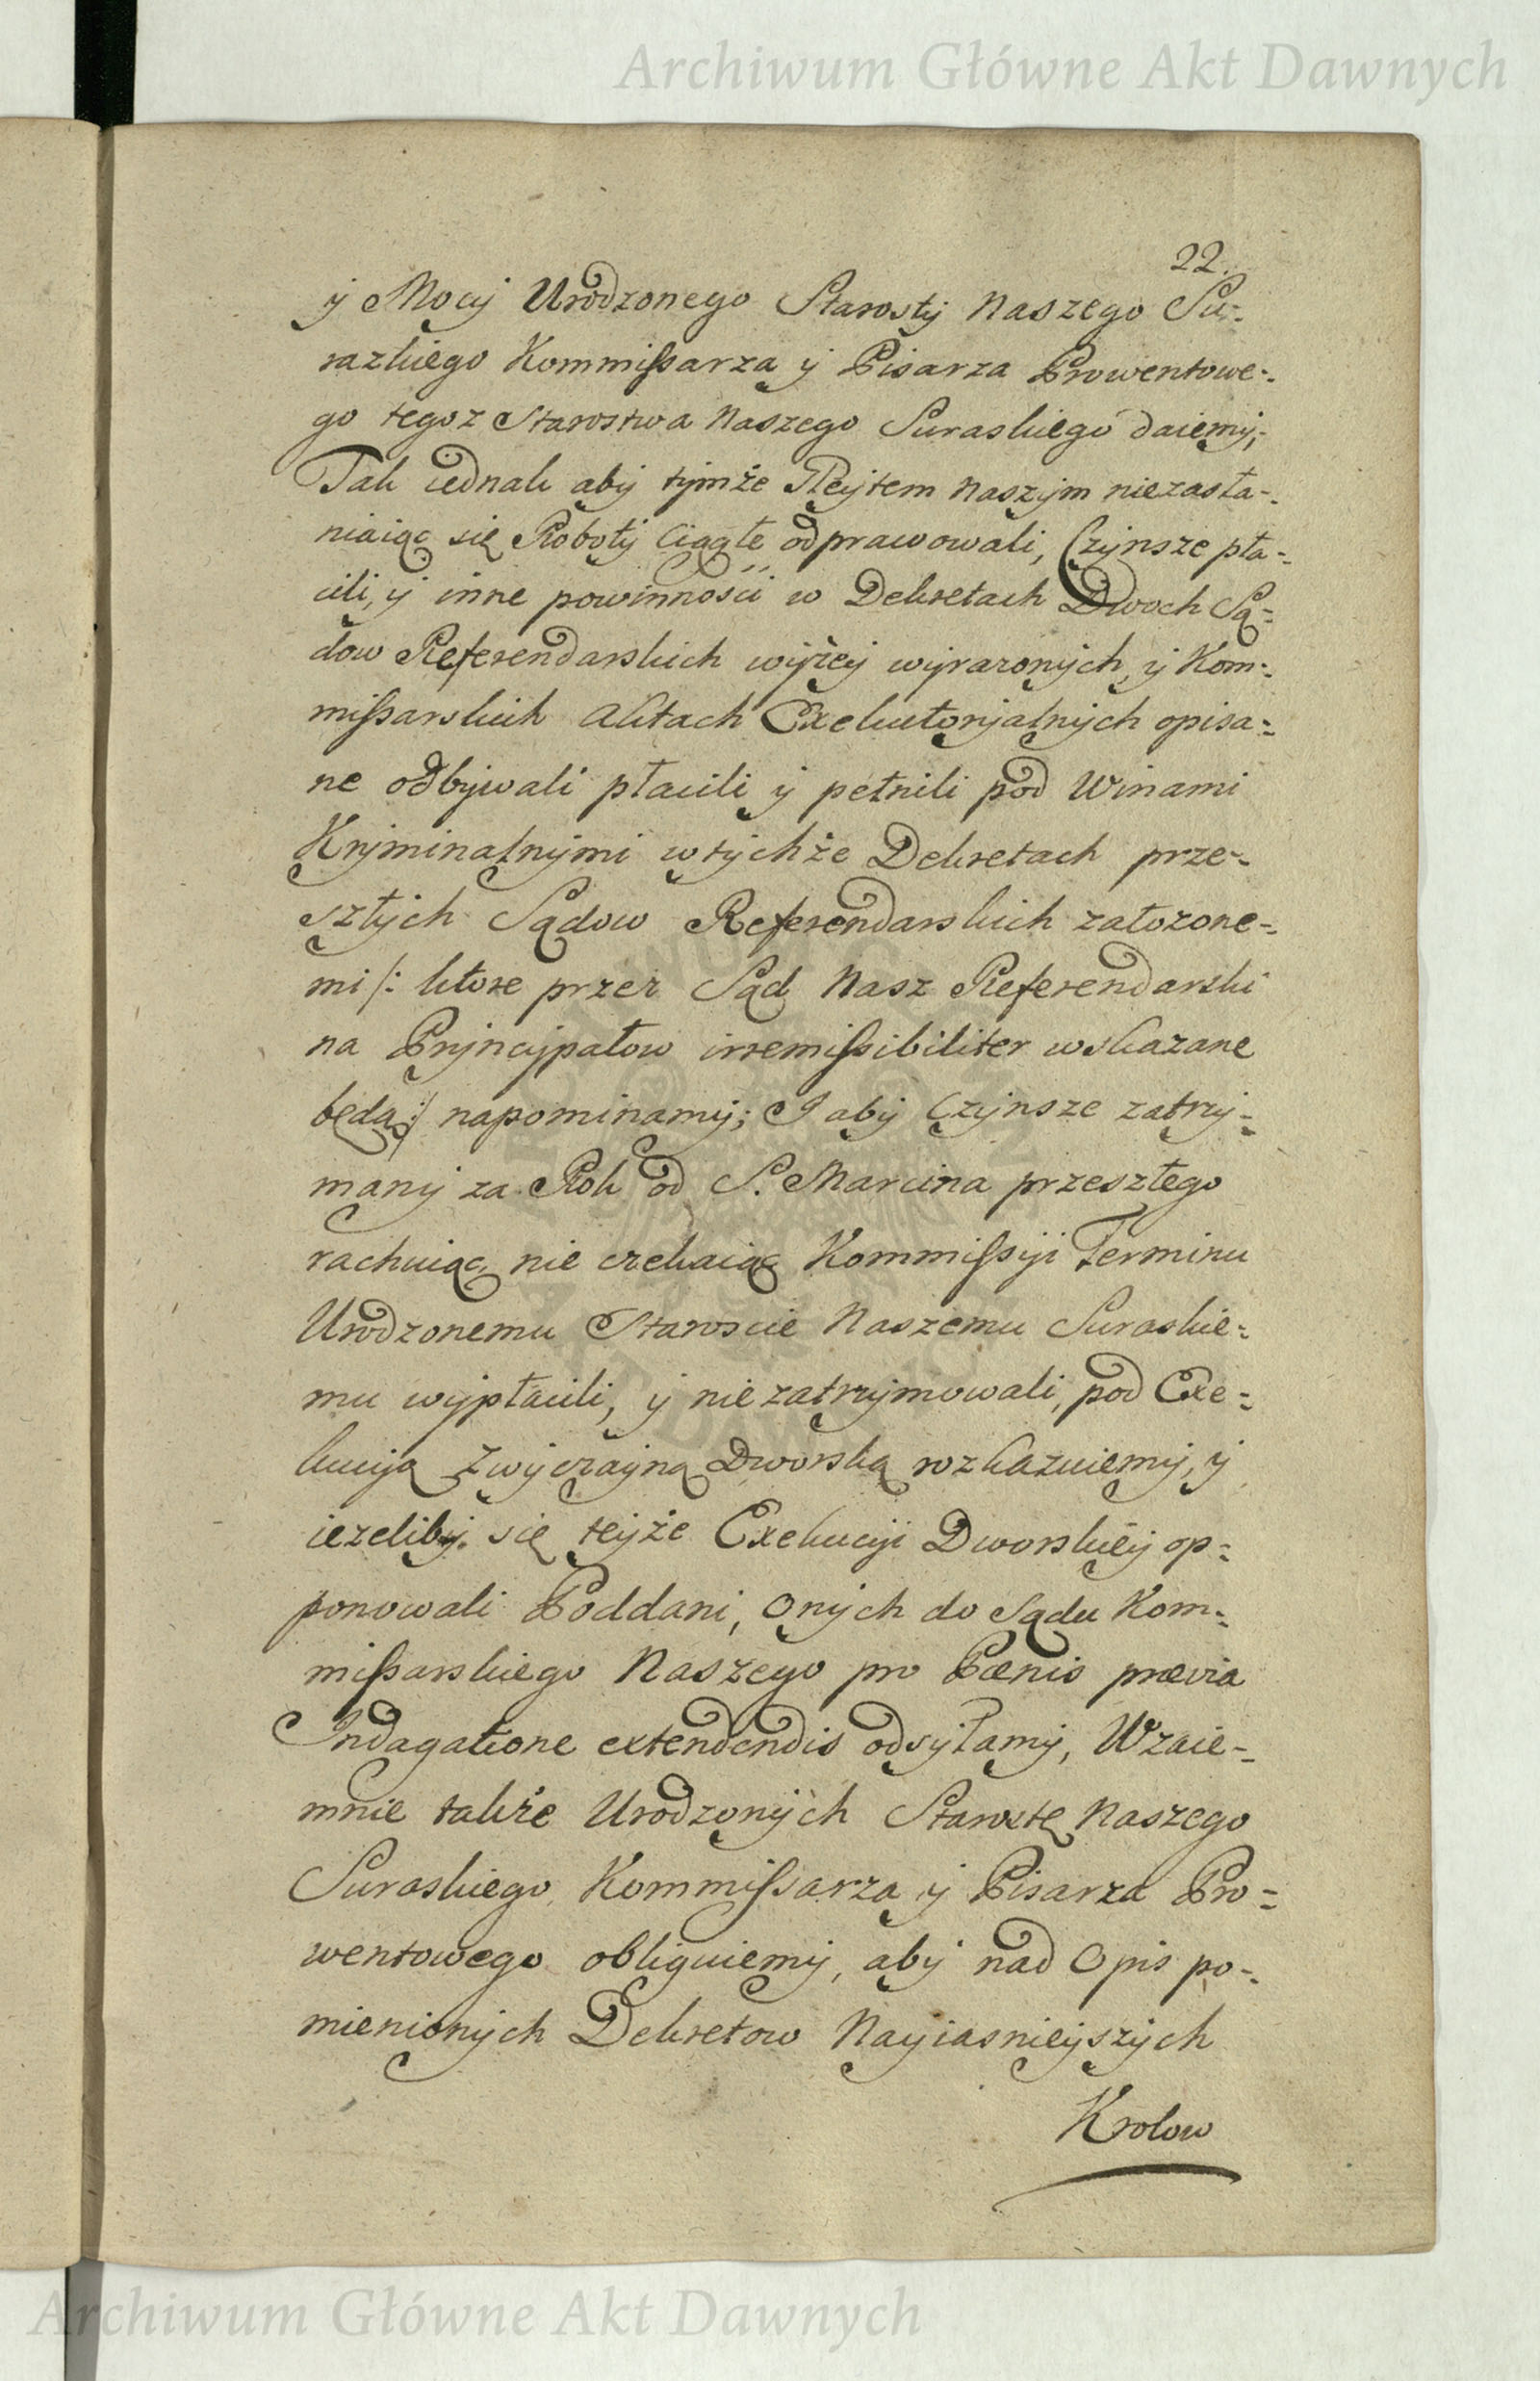 Archiwum Główne Akt Dawnych
22.
y Mocy Urodzonego Starosty Naszego Su=
razkiego Kommissarza y Pisarza Prowentowe=
go tegoz Starostwa Naszego Suraskiego daiemy;
Tak iednak aby tymże Glejtem Naszym niezasła=
niaiąc się Roboty Ciągłe odprawowali, Czynsze pła=
cili, y inne powinności w Dekretach Dwoch Są=
dow Referendarskich wyżey wyrazonych, y Kom=
missarskich Aktach Exekutoryalnych opisa=
ne odbywali płacili y pełnili pod Winami
Kryminalnymi w tychże Dekretach prze=
szłych Sądow Referendarskich założone=
mi /: ktore przez Sąd Nasz Referendarski
na Pryncypałow irremissibiliter wskazane
będą :/ napominamy; I aby Czynsze zatrzy=
many za Rok od S. Marcina przeszłego
rachuiąc, nie czekaiąc Kommissyi Terminu
Urodzonemu Staroscie Naszemu Suraskie=
mu wypłacili, y nie zatrzymowali, pod Exe=
kucyą Zwyczayną Dworską rozkazuiemy, y
iezeliby się teyże Exekucyi Dworskiey op=
ponowali Poddani, Onych do Sądu Kom=
missarskiego Naszego pro Pænis prævia
Indagatione extendendis odsyłamy, Wzaie=
mnie także Urodzonych Starostę Naszego
Suraskiego, Kommissarza y Pisarza Pro=
wentowego obliguiemy, aby nad Opis po=
mienionych Dekretow Nayiasnieyszych
Krolow
Archiwum Główne Akt Dawnych